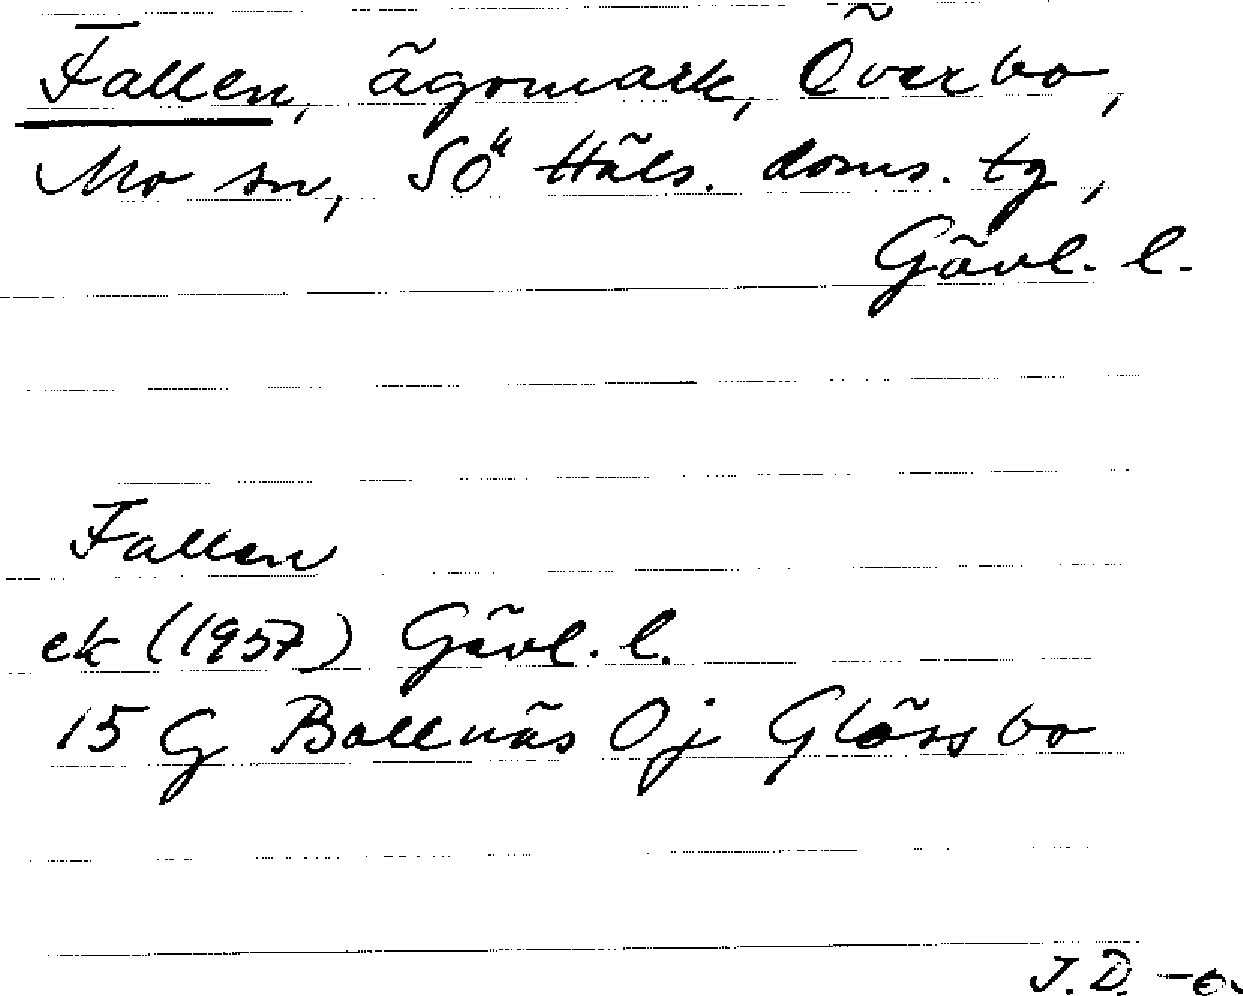 Fallen, ägomark, Överbo,
Mo sn, Sö Häls. doms. tg,
Gävl. l.
Fallen
ek (1957) Gävl. l.
15 G Bollnäs 0j Glössbo
J. D. -o.